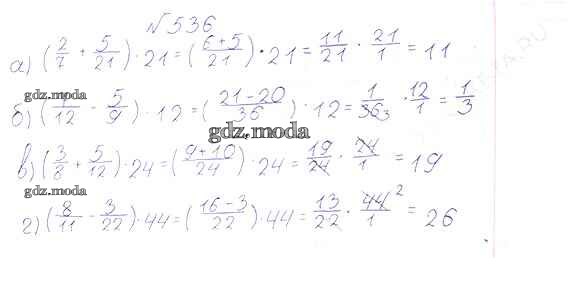 №536
а) (2/7 + 5/21) · 21 = (6+5/21) · 21 = 11/21 · 21/1 = 11
gdz.moda
б) (7/12 - 5/9) · 12 = (21-20/36) · 12 = 1/36 3 · 12/1 = 1/3
gdz.moda
в) (3/8 + 5/12) · 24 = (9+10/24) · 24 = 19/24 · 24/1 = 19
gdz.moda
г) (8/11 - 3/22) · 44 = (16-3/22) · 44 = 13/22 · 44/1 2 = 26